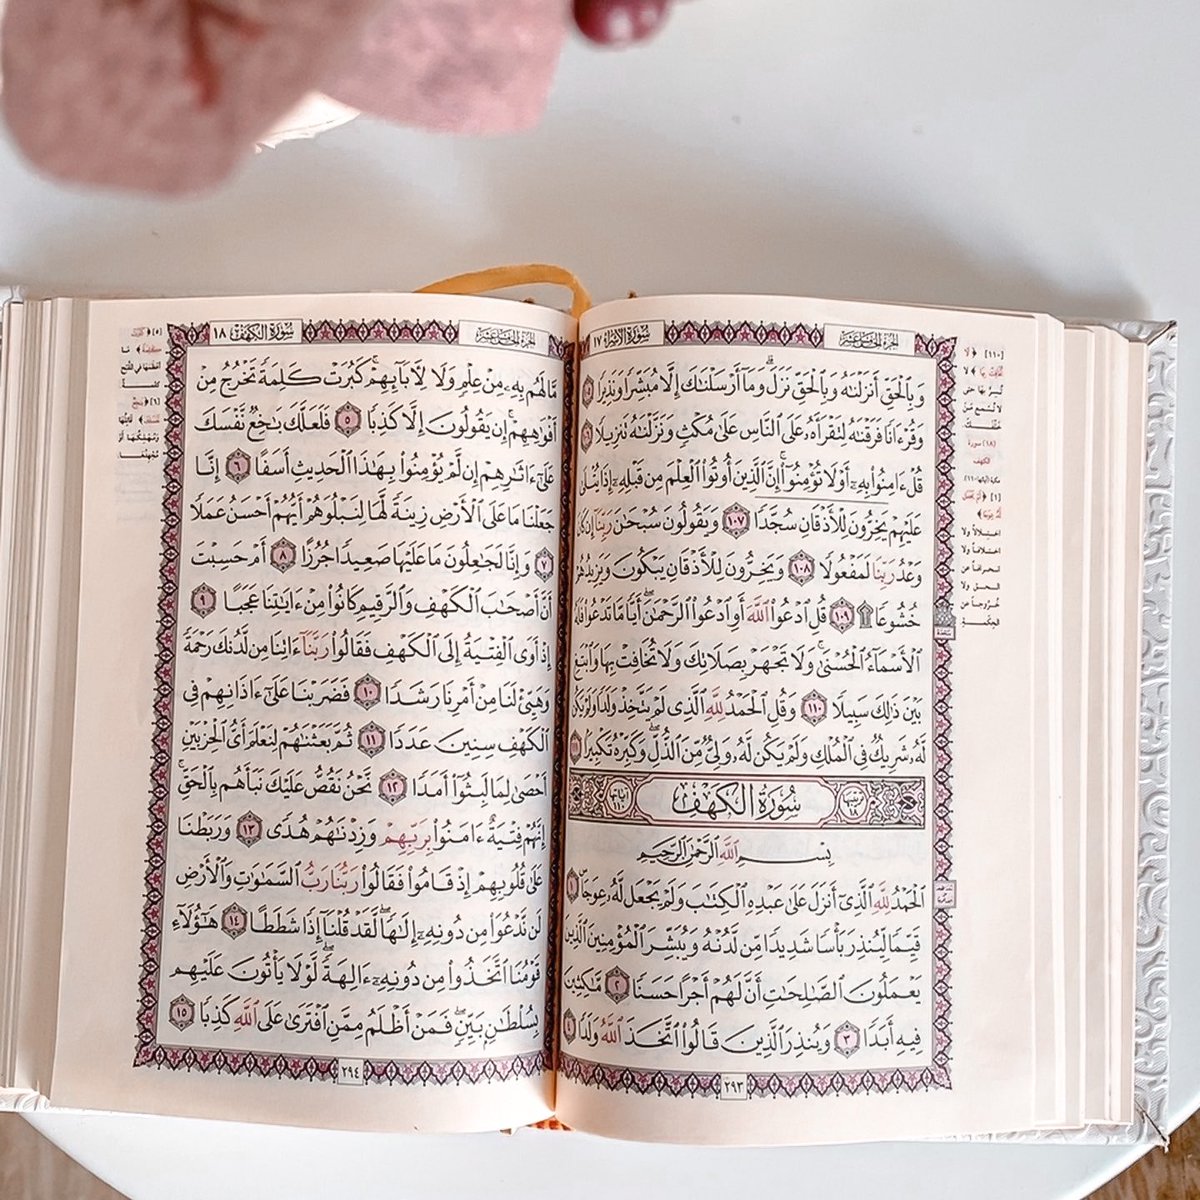 سُورَةُ الإِسْرَاءِ ١٧
الجُزْءُ الخَامِسَ عَشَرَ
وَبِٱلْحَقِّ أَنزَلْنَٰهُ وَبِٱلْحَقِّ نَزَلَ ۗ وَمَآ أَرْسَلْنَٰكَ إِلَّا مُبَشِّرًا وَنَذِيرًا
وَقُرْءَانًا فَرَقْنَٰهُ لِتَقْرَأَهُۥ عَلَى ٱلنَّاسِ عَلَىٰ مُكْثٍ وَنَزَّلْنَٰهُ تَنزِيلًا
قُلْ ءَامِنُوا۟ بِهِۦٓ أَوْ لَا تُؤْمِنُوٓا۟ ۚ إِنَّ ٱلَّذِينَ أُوتُوا۟ ٱلْعِلْمَ مِن قَبْلِهِۦٓ إِذَا يُتْلَىٰ
عَلَيْهِمْ يَخِرُّونَ لِلْأَذْقَانِ سُجَّدًا ١٠٧ وَيَقُولُونَ سُبْحَٰنَ رَبِّنَآ إِن كَانَ
وَعْدُ رَبِّنَا لَمَفْعُولًا ١٠٨ وَيَخِرُّونَ لِلْأَذْقَانِ يَبْكُونَ وَيَزِيدُهُمْ
خُشُوعًا ۩ ١٠٩ قُلِ ٱدْعُوا۟ ٱللَّهَ أَوِ ٱدْعُوا۟ ٱلرَّحْمَٰنَ ۖ أَيًّا مَّا تَدْعُوا۟ فَلَهُ
ٱلْأَسْمَآءُ ٱلْحُسْنَىٰ ۚ وَلَا تَجْهَرْ بِصَلَاتِكَ وَلَا تُخَافِتْ بِهَا وَٱبْتَغِ
بَيْنَ ذَٰلِكَ سَبِيلًا ١١٠ وَقُلِ ٱلْحَمْدُ لِلَّهِ ٱلَّذِى لَمْ يَتَّخِذْ وَلَدًا وَلَمْ يَكُن
لَّهُۥ شَرِيكٌ فِى ٱلْمُلْكِ وَلَمْ يَكُن لَّهُۥ وَلِىٌّ مِّنَ ٱلذُّلِّ ۖ وَكَبِّرْهُ تَكْبِيرًا
سُورَةُ الكَهْفِ
بِسْمِ ٱللَّهِ ٱلرَّحْمَٰنِ ٱلرَّحِيمِ
ٱلْحَمْدُ لِلَّهِ ٱلَّذِىٓ أَنزَلَ عَلَىٰ عَبْدِهِ ٱلْكِتَٰبَ وَلَمْ يَجْعَل لَّهُۥ عِوَجَا ۜ ١
قَيِّمًا لِّيُنذِرَ بَأْسًا شَدِيدًا مِّن لَّدُنْهُ وَيُبَشِّرَ ٱلْمُؤْمِنِينَ ٱلَّذِينَ
يَعْمَلُونَ ٱلصَّٰلِحَٰتِ أَنَّ لَهُمْ أَجْرًا حَسَنًا ٢ مَّٰكِثِينَ
فِيهِ أَبَدًا ٣ وَيُنذِرَ ٱلَّذِينَ قَالُوا۟ ٱتَّخَذَ ٱللَّهُ وَلَدًا ٤
٢٩٣
سُورَةُ الكَهْفِ ١٨
الجُزْءُ الخَامِسَ عَشَرَ
مَّا لَهُم بِهِۦ مِنْ عِلْمٍ وَلَا لِءَابَآئِهِمْ ۚ كَبُرَتْ كَلِمَةً تَخْرُجُ مِنْ
أَفْوَٰهِهِمْ ۚ إِن يَقُولُونَ إِلَّا كَذِبًا ٥ فَلَعَلَّكَ بَٰخِعٌ نَّفْسَكَ
عَلَىٰٓ ءَاثَٰرِهِمْ إِن لَّمْ يُؤْمِنُوا۟ بِهَٰذَا ٱلْحَدِيثِ أَسَفًا ٦ إِنَّا
جَعَلْنَا مَا عَلَى ٱلْأَرْضِ زِينَةً لَّهَا لِنَبْلُوَهُمْ أَيُّهُمْ أَحْسَنُ عَمَلًا
٧ وَإِنَّا لَجَٰعِلُونَ مَا عَلَيْهَا صَعِيدًا جُرُزًا ٨ أَمْ حَسِبْتَ
أَنَّ أَصْحَٰبَ ٱلْكَهْفِ وَٱلرَّقِيمِ كَانُوا۟ مِنْ ءَايَٰتِنَا عَجَبًا ٩
إِذْ أَوَى ٱلْفِتْيَةُ إِلَى ٱلْكَهْفِ فَقَالُوا۟ رَبَّنَآ ءَاتِنَا مِن لَّدُنكَ رَحْمَةً
وَهَيِّئْ لَنَا مِنْ أَمْرِنَا رَشَدًا ١٠ فَضَرَبْنَا عَلَىٰٓ ءَاذَانِهِمْ فِى
ٱلْكَهْفِ سِنِينَ عَدَدًا ١١ ثُمَّ بَعَثْنَٰهُمْ لِنَعْلَمَ أَىُّ ٱلْحِزْبَيْنِ
أَحْصَىٰ لِمَا لَبِثُوٓا۟ أَمَدًا ١٢ نَّحْنُ نَقُصُّ عَلَيْكَ نَبَأَهُم بِٱلْحَقِّ ۚ
إِنَّهُمْ فِتْيَةٌ ءَامَنُوا۟ بِرَبِّهِمْ وَزِدْنَٰهُمْ هُدًى ١٣ وَرَبَطْنَا
عَلَىٰ قُلُوبِهِمْ إِذْ قَامُوا۟ فَقَالُوا۟ رَبُّنَا رَبُّ ٱلسَّمَٰوَٰتِ وَٱلْأَرْضِ
لَن نَّدْعُوَا۟ مِن دُونِهِۦٓ إِلَٰهًا ۖ لَّقَدْ قُلْنَآ إِذًا شَطَطًا ١٤ هَٰٓؤُلَآءِ
قَوْمُنَا ٱتَّخَذُوا۟ مِن دُونِهِۦٓ ءَالِهَةً ۖ لَّوْلَا يَأْتُونَ عَلَيْهِم
بِسُلْطَٰنٍۭ بَيِّنٍ ۖ فَمَنْ أَظْلَمُ مِمَّنِ ٱفْتَرَىٰ عَلَى ٱللَّهِ كَذِبًا ١٥
٢٩٤